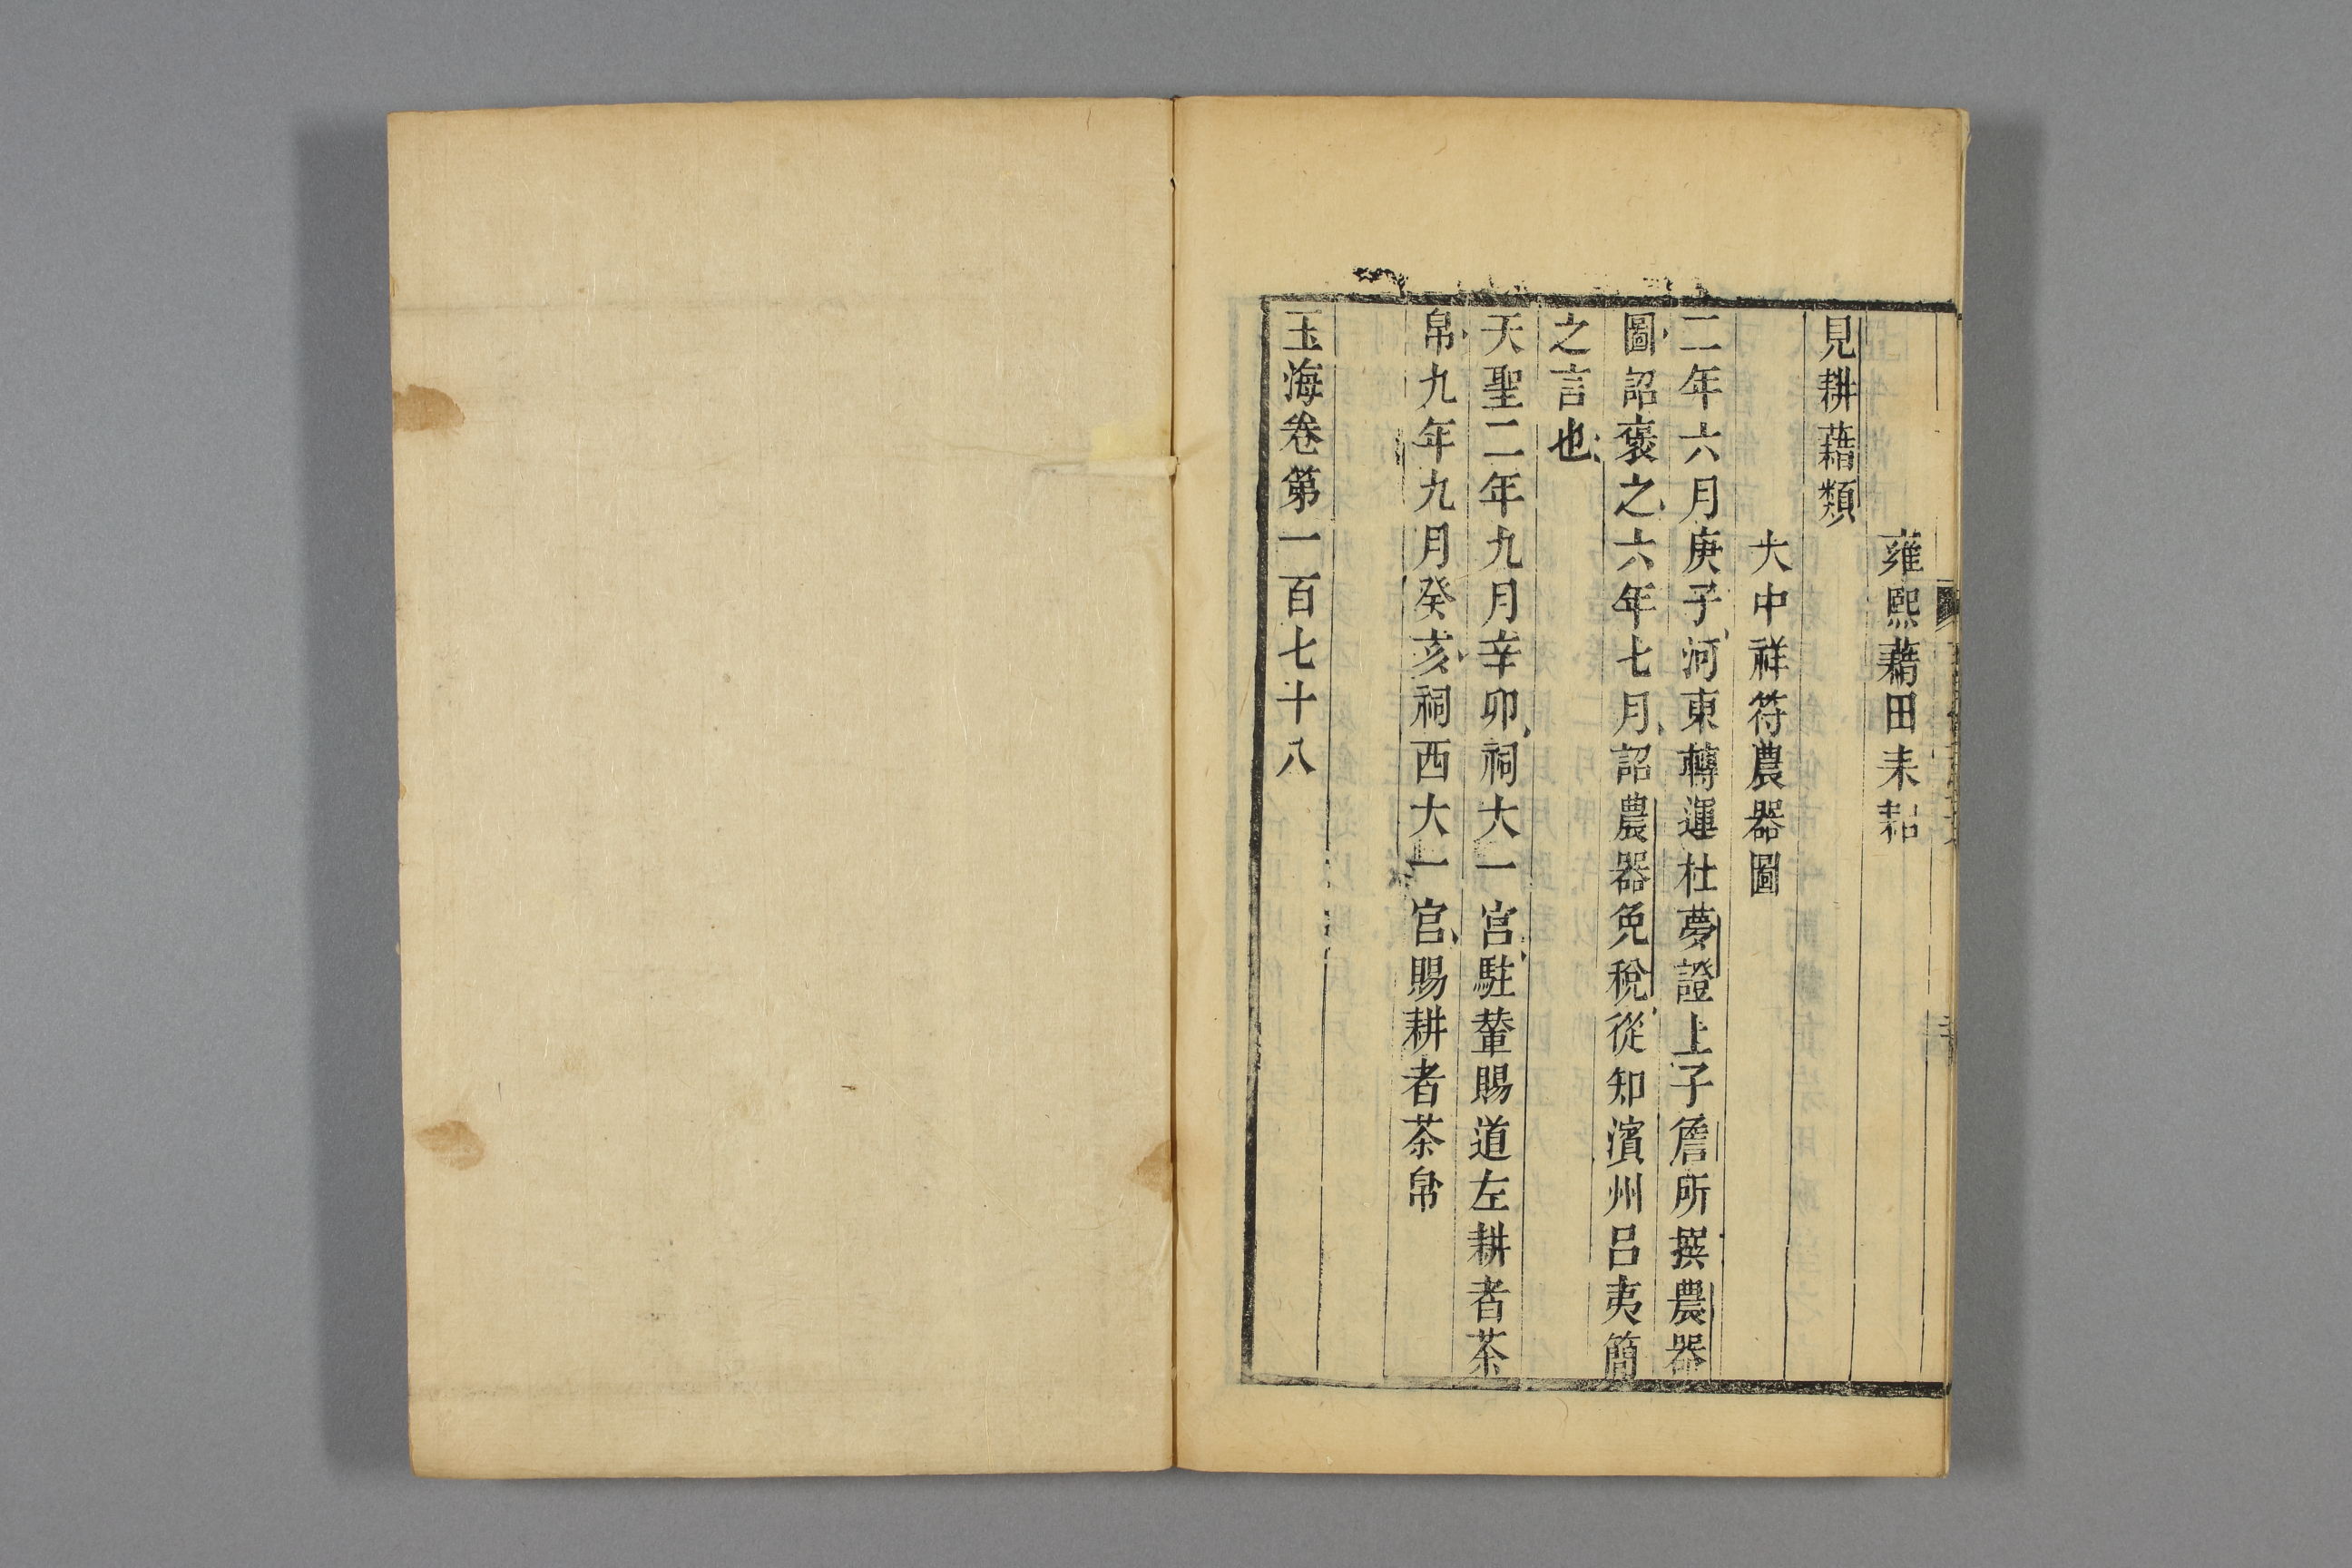 雍熙藉田耒耜
見耕藉類
大中祥符農器圖
二年六月庚子河東轉運杜夢證上子詹所撰農器
圖詔褒之六年七月詔農器免稅從知濱州呂夷簡
之言也
天聖二年九月辛卯祠大一宮駐輦賜道左耕者茶
帛九年九月癸亥祠西大一宮賜耕者茶帛
玉海卷第一百七十八